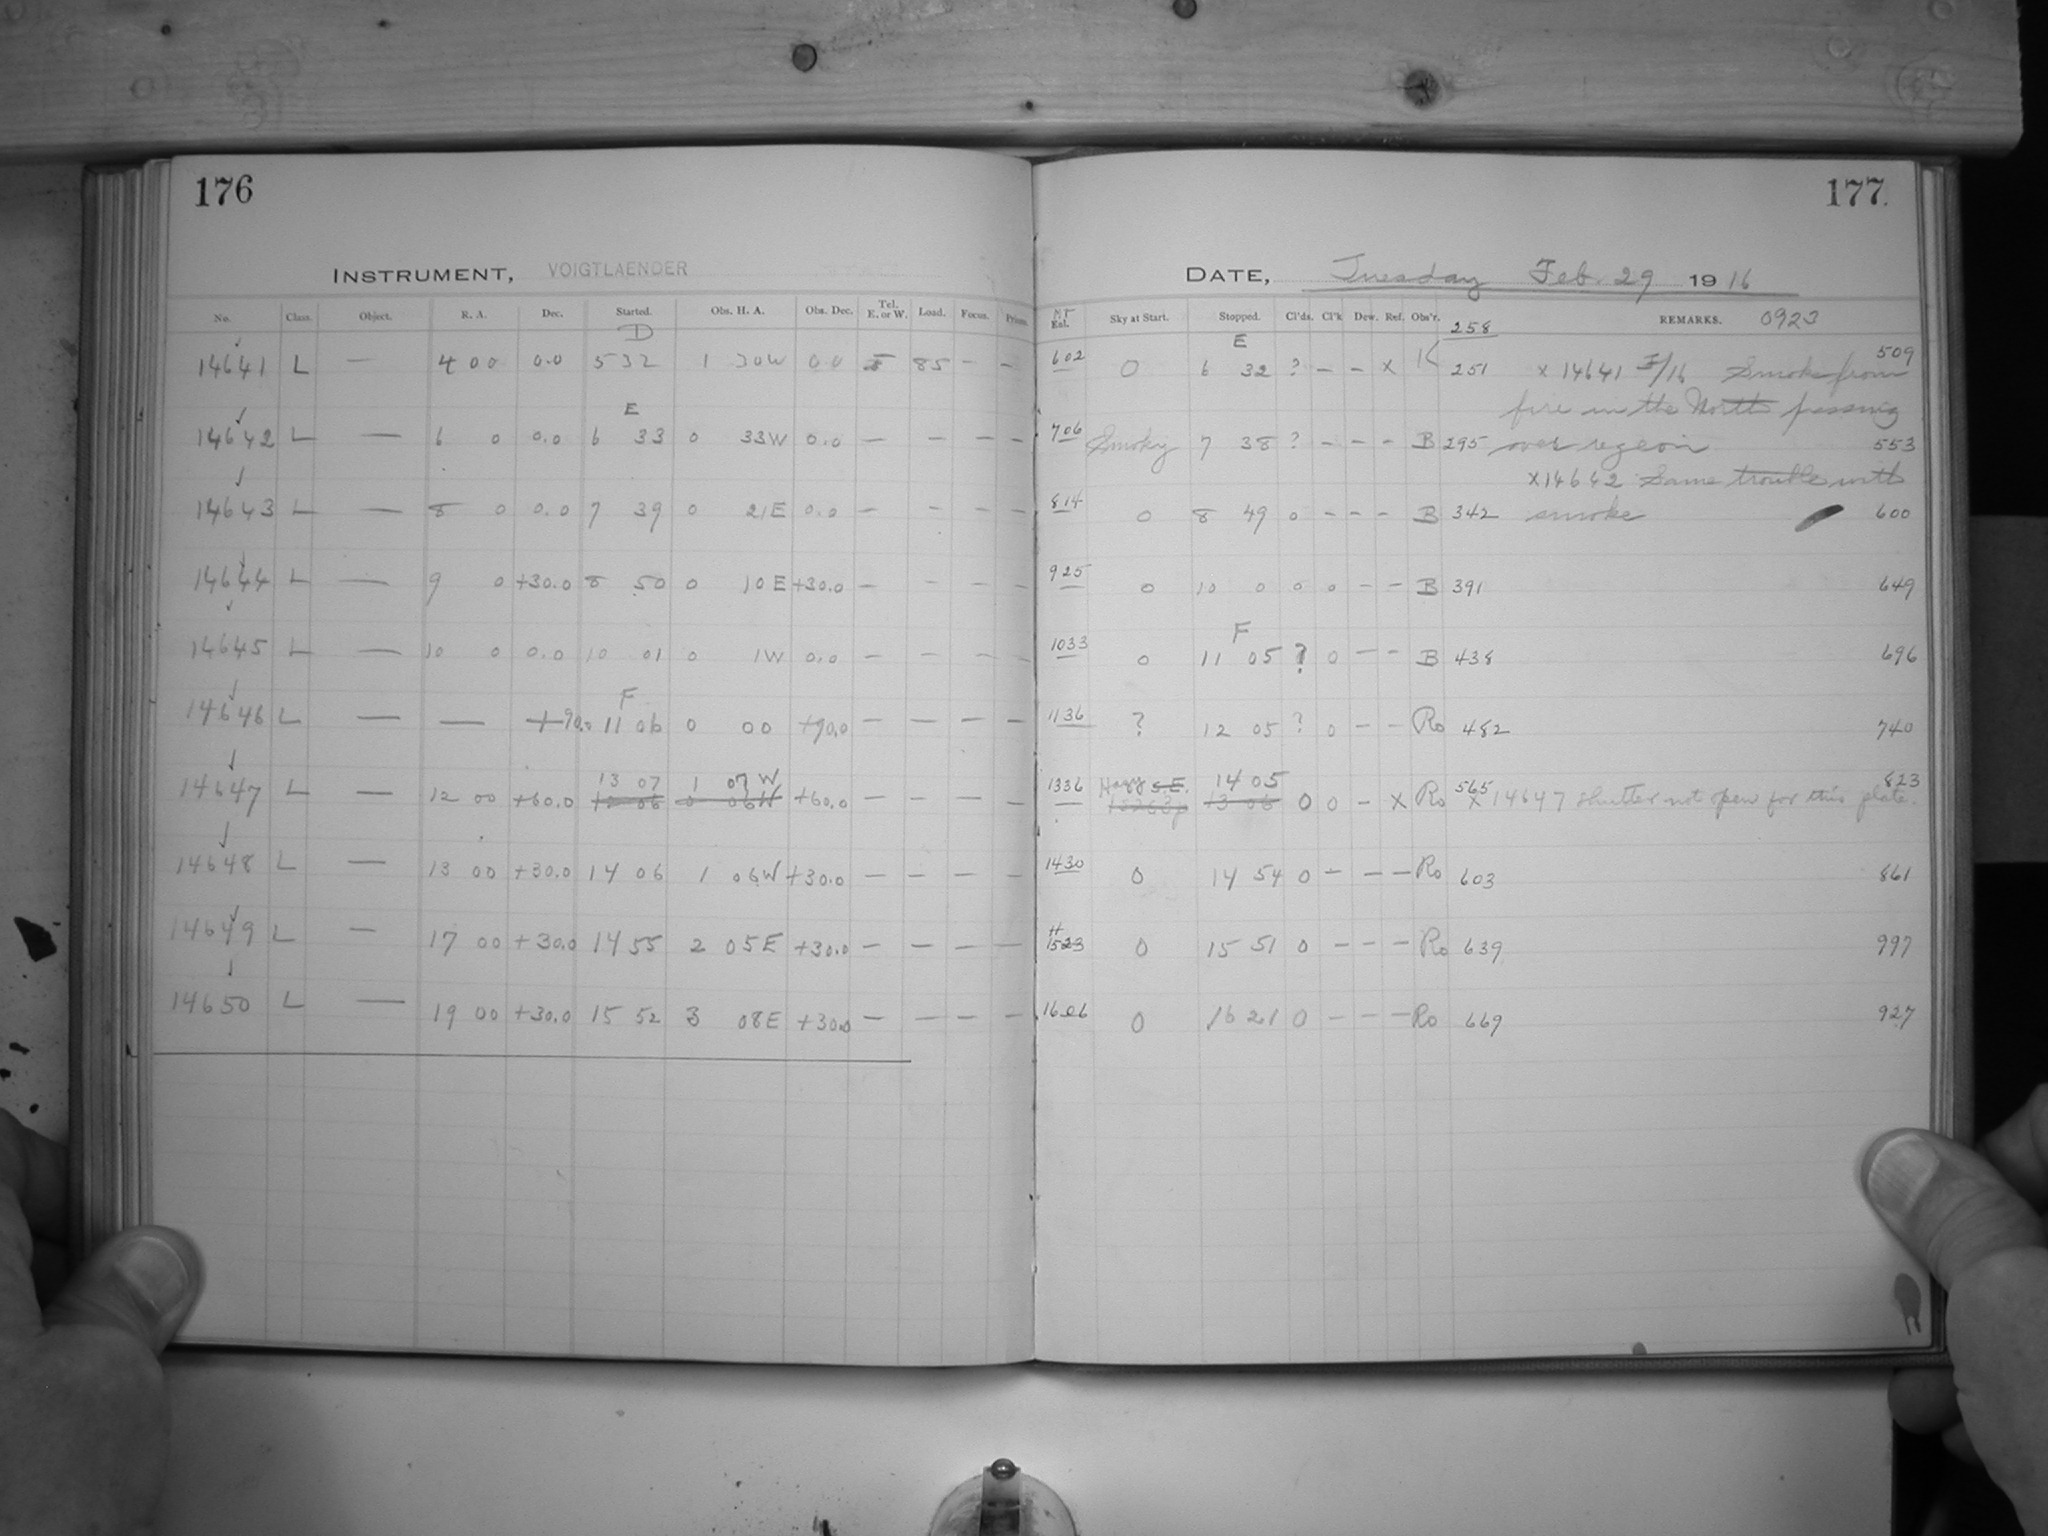 176
INSTRUMENT, VOIGTLAENDER
No. Class. Object. R. A. Dec. Started. Obs. H. A. Obs. Dec. Tel. E. or W. Load. Focus. Prisms.
D
14641 L — 4 00 0.0 5 32 1 30W 0.0 E 85 — —
E
14642 L — 6 0 0.0 6 33 0 33W 0.0 — — — —
14643 L — 8 0 0.0 7 39 0 21E 0.0 — — — —
14644 L — 9 0 +30.0 8 50 0 10E +30.0 — — — —
14645 L — 10 0 0.0 10 01 0 1W 0.0 — — — —
F
14646 L — — +90.0 11 06 0 00 +90.0 — — — —
13 07 1 07 W
14647 L — 12 00 +60.0 12 06 0 06W +60.0 — — — —
14648 L — 13 00 +30.0 14 06 1 06W +30.0 — — — —
14649 L — 17 00 +30.0 14 55 2 05E +30.0 — — — —
14650 L — 19 00 +30.0 15 52 3 08E +30.0 — — — —
177.
DATE, Tuesday Feb. 29 1916
Sky at Start. Stopped. Cl'ds. Cl'k Dew. Ref. Obs'r. 258 REMARKS. 0923
E
602 0 6 32 ? — — x K 251 x 14641 F/16 Smoke from 509
fire in the North passing
706 Smoky 7 38 ? — — — B 295 over region 553
x14642 Same trouble with
814 0 8 49 0 — — — B 342 smoke 600
925 0 10 0 0 0 — — B 391 649
F
1033 0 11 05 ? 0 — — B 438 696
1136 ? 12 05 ? 0 — — Ro 482 740
14 05
1336 Hazy S.E. 13 06 0 0 — x Ro 565 x 14647 shutter not open for this plate. 823
1430 0 14 54 0 — — — Ro 603 861
1523 0 15 51 0 — — — Ro 639 997
1606 0 16 21 0 — — — Ro 669 927